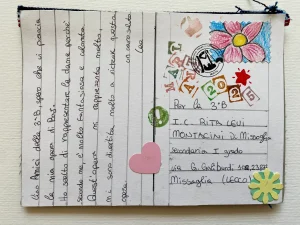 Ciao Amici della 3°B, spero che vi piaccia
la mia opera di Bos.
Ho scelto di rappresentare le dame perché
secondo me, è molto fantasiosa e colorata
Quest'opera mi rappresenta molto,
mi sono divertita molto a
opera.
un caro saluto
Lea
MART
2025
Per la 3°B
I.C. RITA LEVI
MONTALCINI DI Missaglia
secondaria I grado
via G. Garibardi
Missaglia (LECCO)